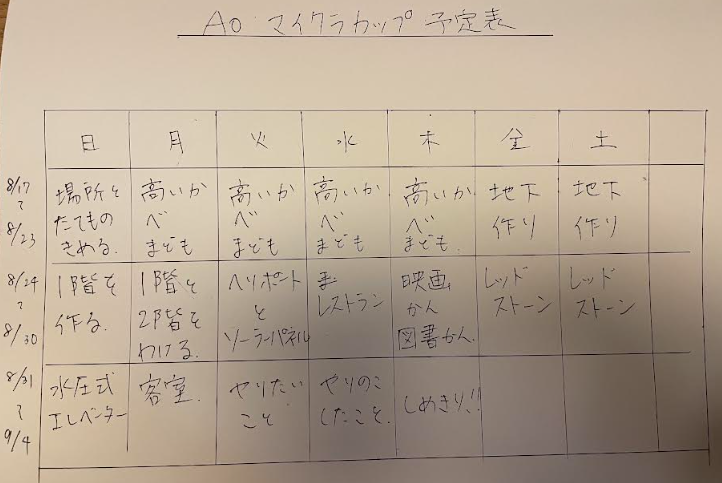 AO マイクラカップ 予定表
日 月 火 水 木 金 土
8/17
~
8/23
場所と
たてもの
きめる.
高いか
べ
まども
高いか
べ
まども
高いか
べ
まども
高いか
べ
まども.
地下
作り
地下
作り
8/24
~
8/30
1階を
作る.
1階と
2階を
わける.
ヘリポート
と
ソーラーパネル
レストラン
映画
かん
図書かん.
レッド
ストーン
レッド
ストーン
8/31
~
9/4
水圧式
エレベーター
客室.
やりたい
こと
やりのこ
したこと.
しめきり!!